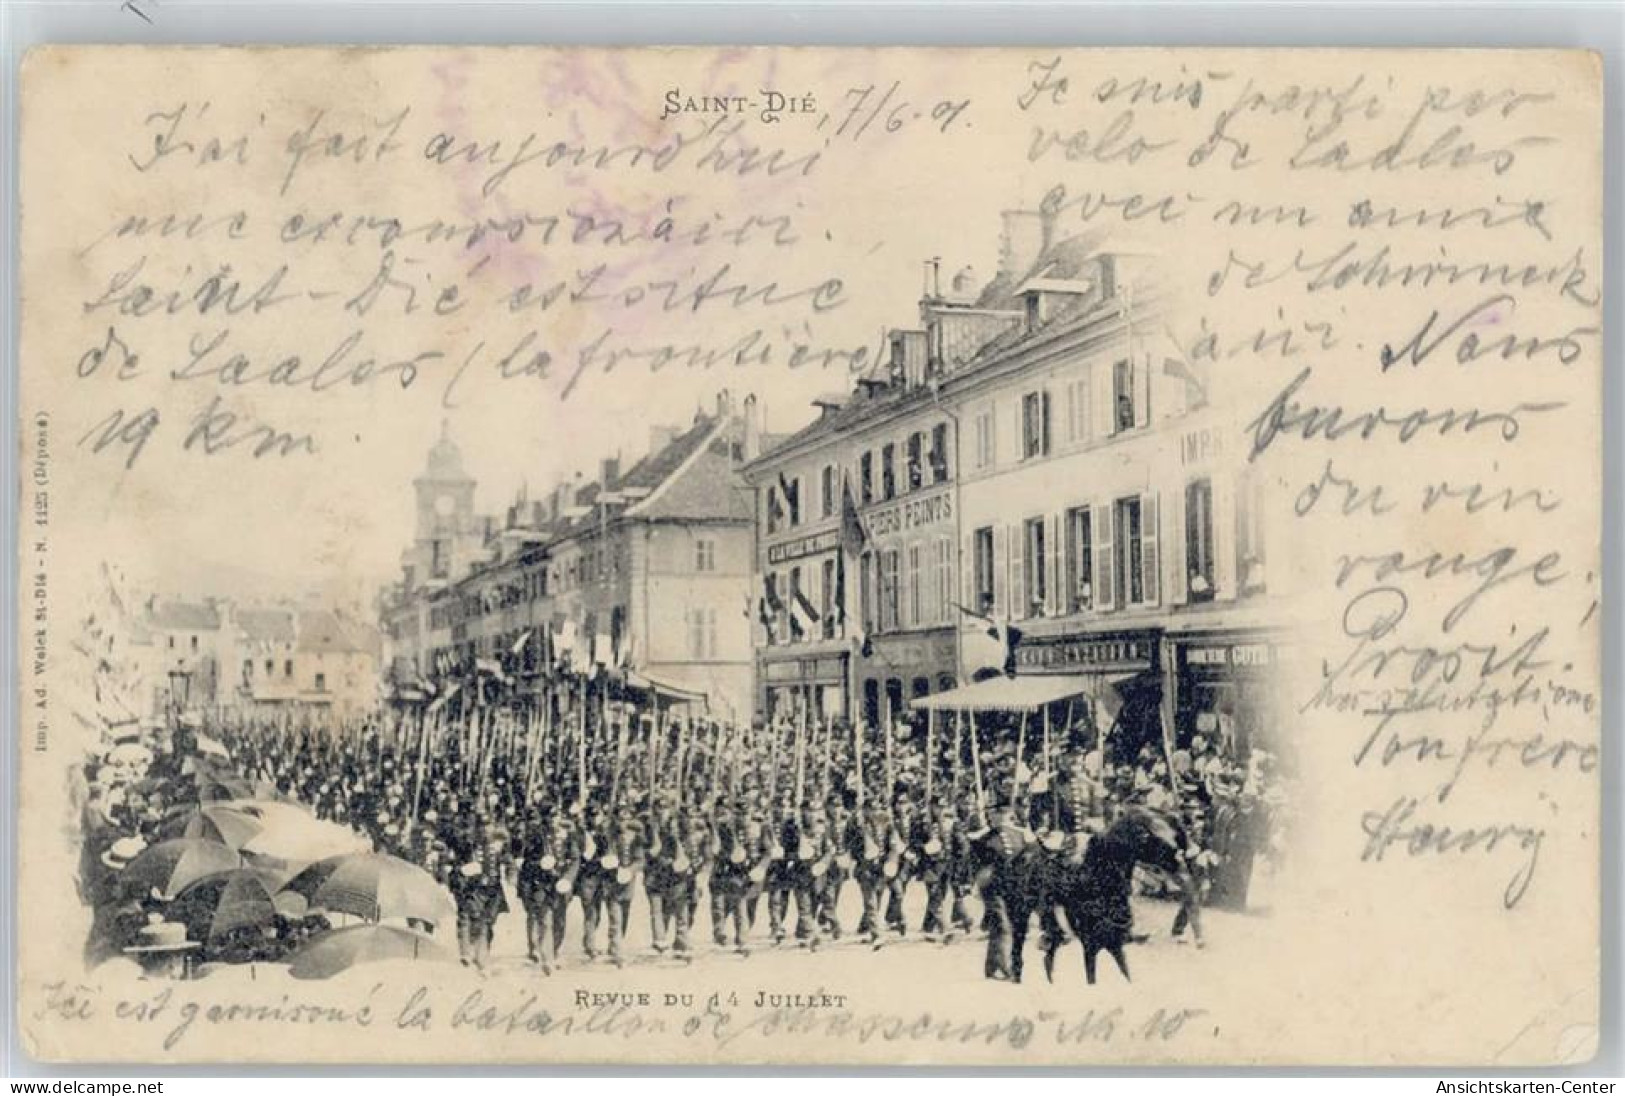 SAINT-DIÉ, 7/6.01.
J'ai fait aujourd'hui
une excoursion à ici.
Saint-Dié est situe
de Saales (la frontière)
19 km.
Je suis parti per
velo de Saales
avec un amie
de Schirmeck
à ici. Nous
burons
du vin
rouge.
Prosit.
Mes salutations
Ton frere
Henry
PAPIERS PEINTS
IMPR
Imp. Ad. Weick St-Dié - N. 1125 (Déposé)
REVUE DU 14 JUILLET
Ici est garnisoné la bataillon de chasseurs N. 10.
AnsichtsKarten-Center